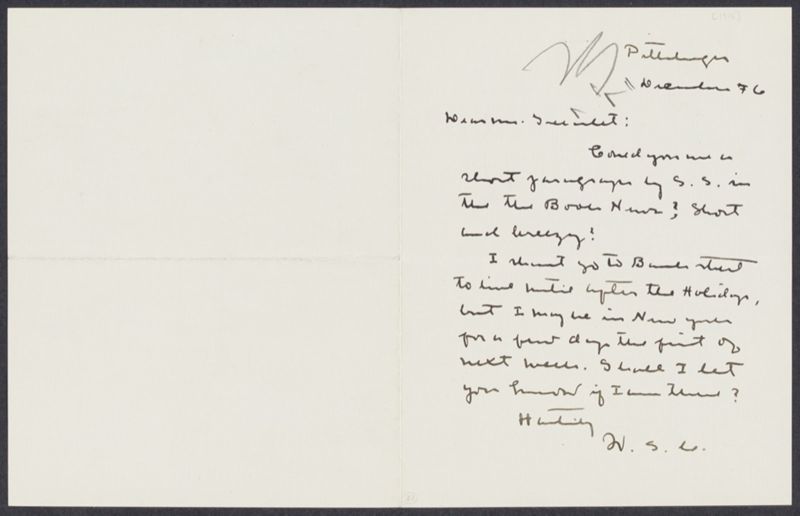 Pittsburgh
December 7 6
Dear Mr. Greenslet:
Could you use a
short paragraph by S. S. in
the the Book News? Short
and breezy!
I shant go to Bank street
to live until after the Holidays,
but I may be in New York
for a few days the first of
next week. Shall I let
you know if I am there?
Heartily
W. S. C.